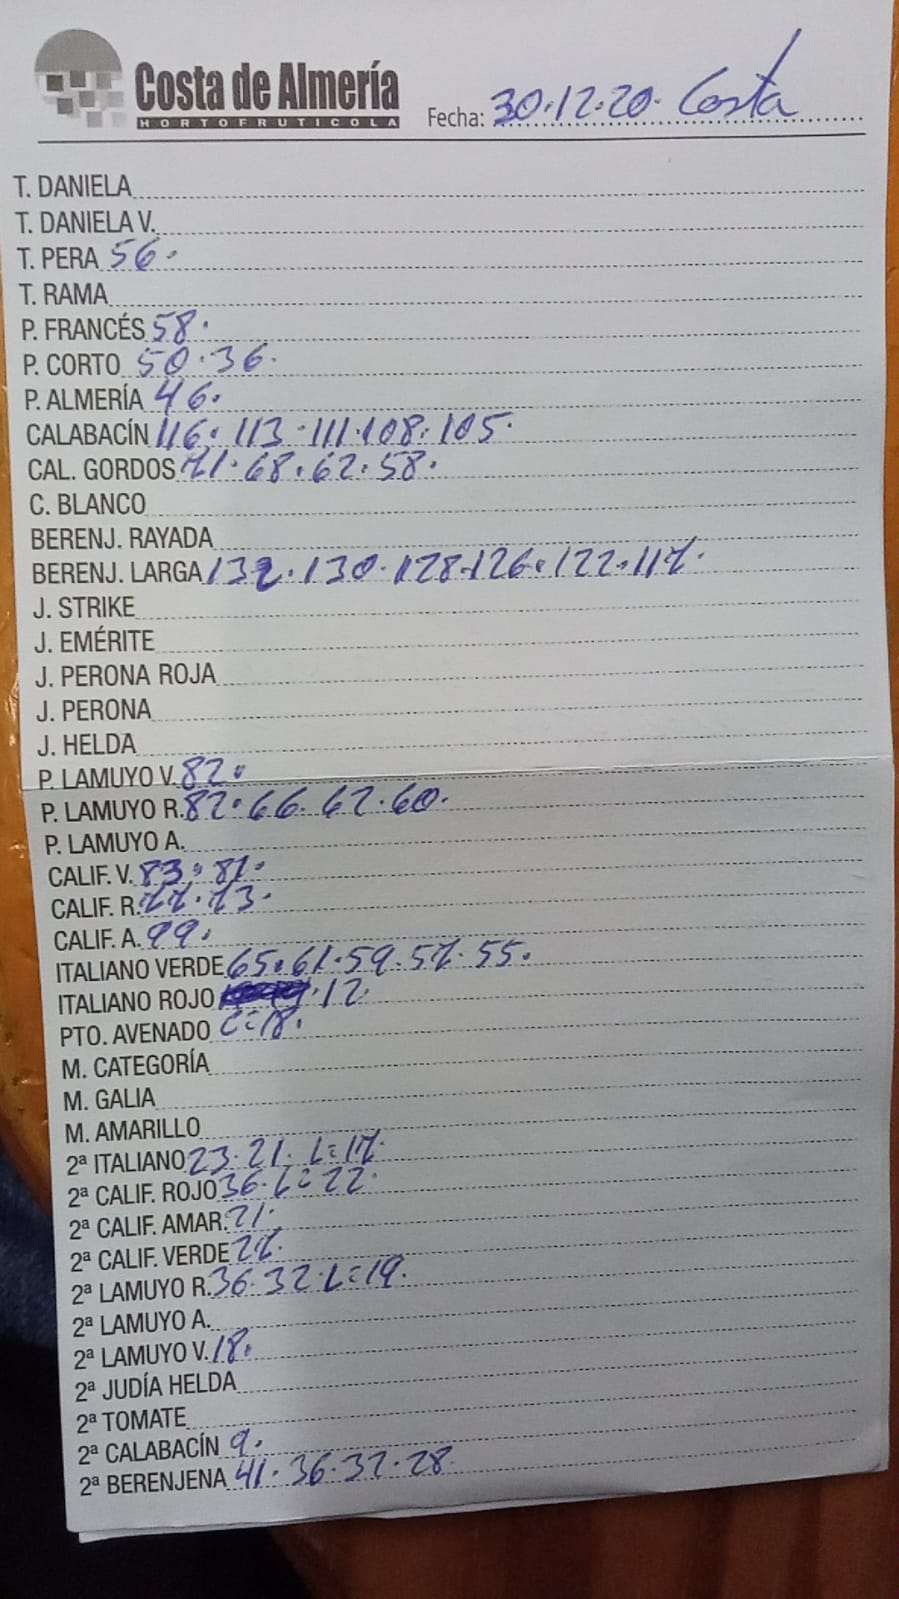 Costa de Almería
HORTOFRUTICOLA
Fecha: 30·12·20· Costa
T. DANIELA
T. DANIELA V.
T. PERA 56·
T. RAMA
P. FRANCÉS 58·
P. CORTO 50·36·
P. ALMERÍA 46·
CALABACÍN 116·113·111·108·105·
CAL. GORDOS 71·68·62·58·
C. BLANCO
BERENJ. RAYADA
BERENJ. LARGA 132·130·128·126·122·117·
J. STRIKE
J. EMÉRITE
J. PERONA ROJA
J. PERONA
J. HELDA
P. LAMUYO V. 82·
P. LAMUYO R. 82·66·62·60·
P. LAMUYO A.
CALIF. V. 83·81·
CALIF. R. 77·73·
CALIF. A. 99·
ITALIANO VERDE 65·61·59·57·55·
ITALIANO ROJO ·12·
PTO. AVENADO C=18·
M. CATEGORÍA
M. GALIA
M. AMARILLO
2ª ITALIANO 23·21·L=17·
2ª CALIF. ROJO 36·L=22·
2ª CALIF. AMAR. 71·
2ª CALIF. VERDE 27·
2ª LAMUYO R. 36·32·L=19·
2ª LAMUYO A.
2ª LAMUYO V. 18·
2ª JUDÍA HELDA
2ª TOMATE
2ª CALABACÍN 9·
2ª BERENJENA 41·36·32·28·